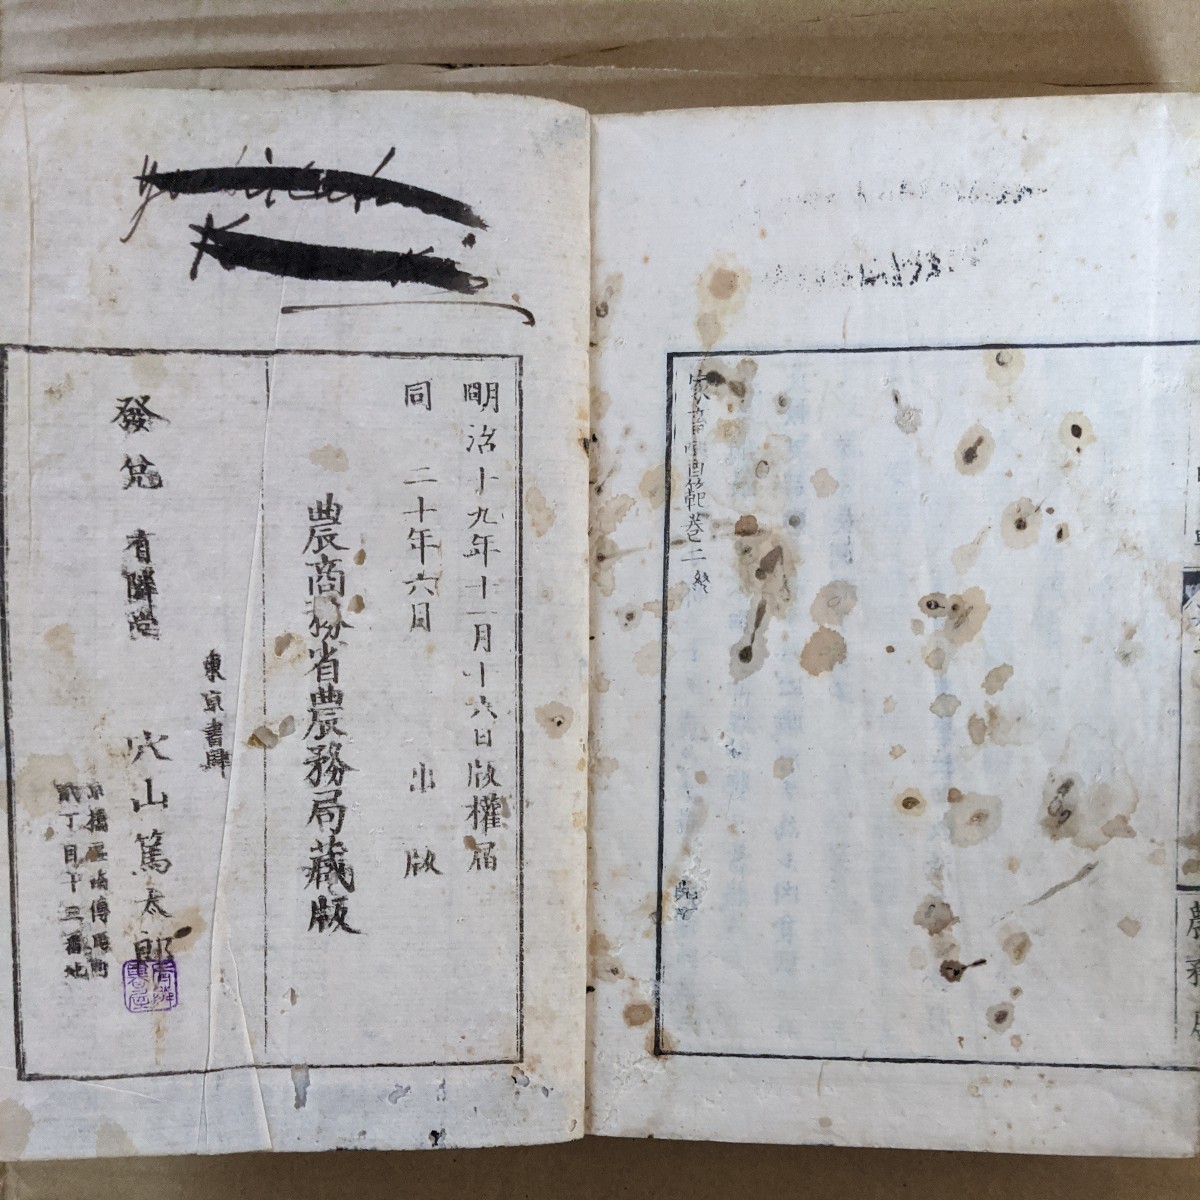 家畜醫範卷二 終
農務局
明治十九年十一月十六日版權届
同 二十年六月 出版
農商務省農務局藏版
東京書肆
發兌 有隣堂 穴山篤太郎
京橋區南傳馬町
貳丁目十三番地